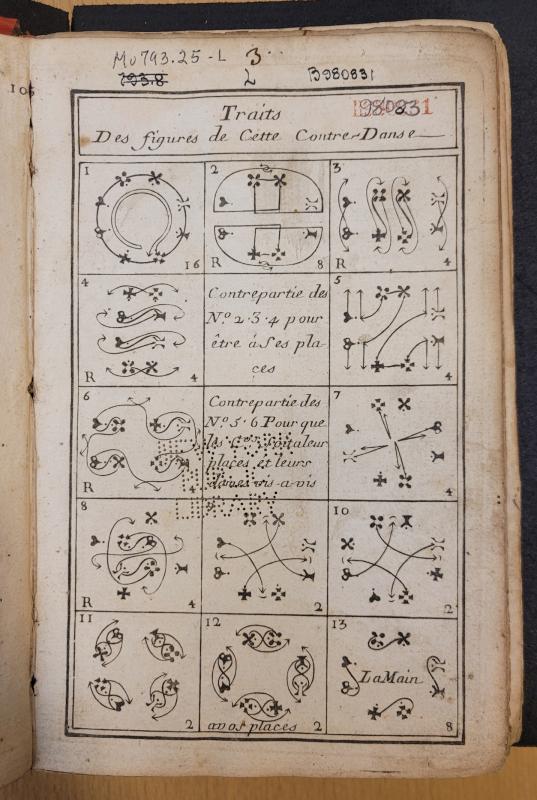 Mu793.25-L 3
793.8 L B980831
Traits
Des figures de Cette Contre-Danse
1
16
2
R 8
3
R 4
4
R 4
Contrepartie des
N.º 2.3.4 pour
être à Ses pla-
ces
5
4
6
R 4
Contrepartie des
N.º 5.6 Pour que
les
places et leurs
dames vis-a-vis
7
4
8
R 4
2
10
2
11
2
12
avos places 2
13
La Main
8